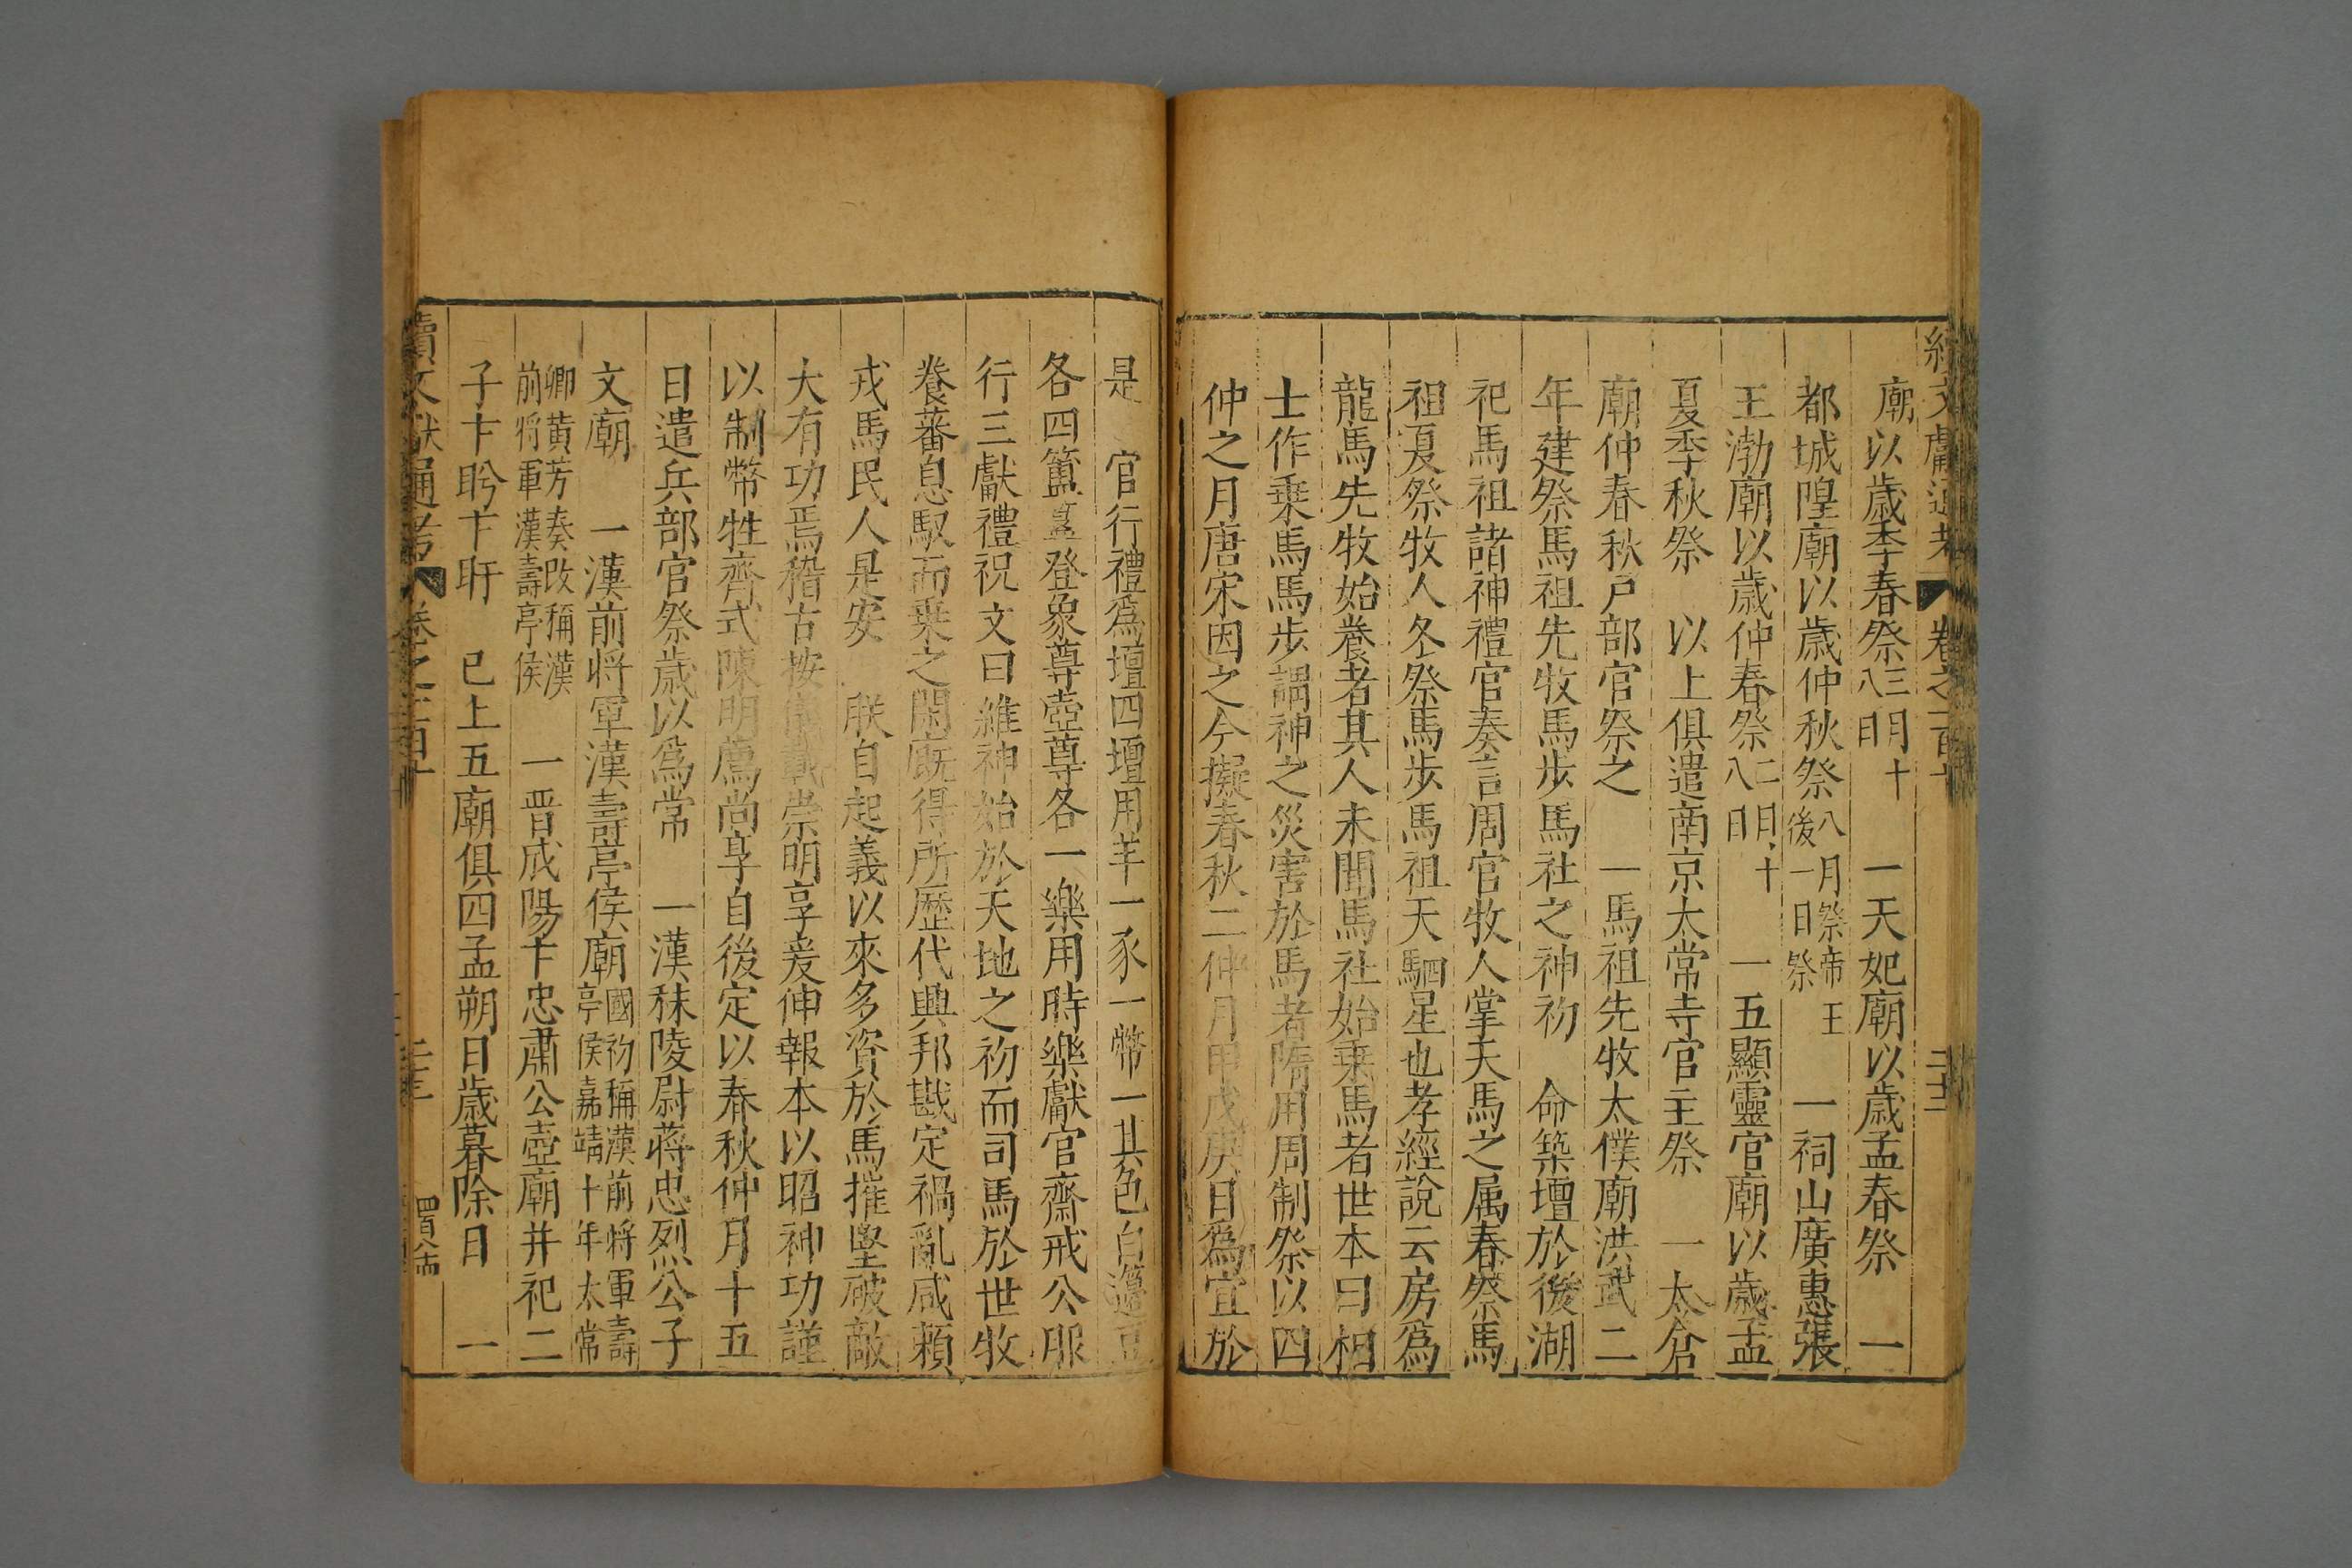 續文獻通考 卷之一百十
廟以歲季春祭三月十八日 一天妃廟以歲孟春祭 一
都城隍廟以歲仲秋祭八月祭帝王後一日祭 一祠山廣惠張
王渤廟以歲仲春祭二月十八日 一五顯靈官廟以歲孟
夏季秋祭 以上俱遣南京太常寺官主祭 一太倉
廟仲春秋戶部官祭之 一馬祖先牧太僕廟洪武二
年建祭馬祖先牧馬步馬社之神初 命築壇於後湖
祀馬祖諸神禮官奏言周官牧人掌天馬之属春祭馬
祖夏祭牧人冬祭馬步馬祖天駟星也孝經說云房爲
龍馬先牧始養者其人未聞馬社始乗馬者世本曰相
士作乗馬馬步謂神之災害於馬者隋用周制祭以四
仲之月唐宋因之今擬春秋二仲月甲戊庚日爲宜於
是 官行禮爲壇四壇用羊一豕一幣一其色白籩豆
各四簠簋登象尊壺尊各一樂用時樂獻官齋戒公服
行三獻禮祝文曰維神始於天地之初而司馬於世牧
養蕃息馭而乗之閑廐得所歷代興邦戡定禍亂咸頼
戎馬民人是安 朕自起義以來多資於馬摧堅破敵
大有功焉稽古按儀載崇明享爰伸報本以昭神功謹
以制幣牲齊式陳明薦尚享自後定以春秋仲月十五
日遣兵部官祭歲以爲常 一漢秣陵尉蔣忠烈公子
文廟 一漢前将軍漢壽亭侯廟國初稱漢前将軍壽亭侯嘉靖十年太常
卿黄芳奏改稱漢前将軍漢壽亭侯 一晋成陽卞忠肅公壼廟并祀二
子卞眕卞盱 已上五廟俱四孟朔日歲暮除日 一
續文獻通考 卷之一百十